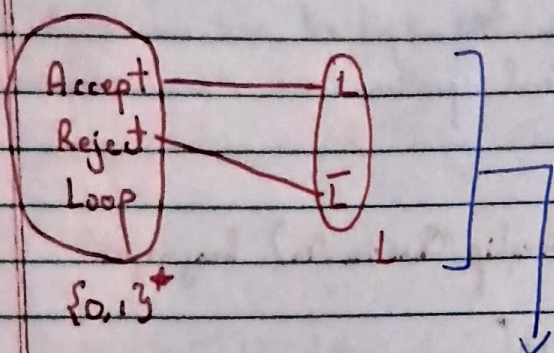 Accept L
Reject
Loop L̅
L
{0,1}*